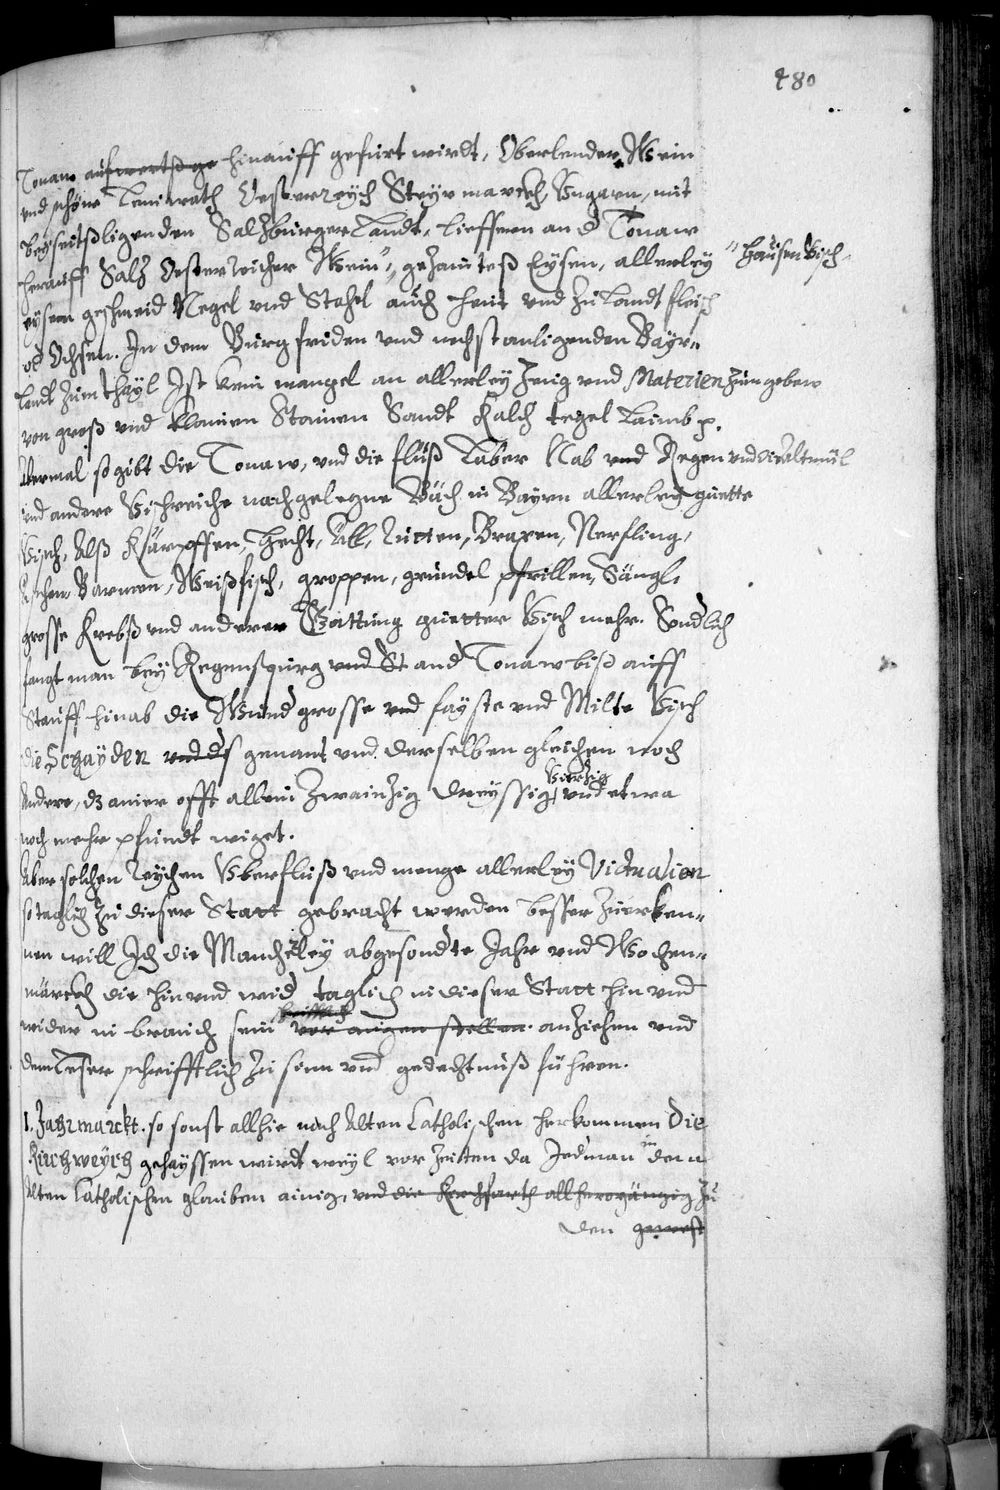 480
Tonaw aufwertß ge hinauff gefürt wirdt, Oberlender Wein
und schöne Leinwath Oesterreych Steyrmarckh, Vngarn, mit
beyseitßligenden Saltzburger Landt, lieffern an d Tonaw
herauff Saltz Osterreicher Wein, gehauteß Eysen, allerley " hausen Visch
eysern geschmeid Negel und Stahel auch heut und zu Landt fleisch
od Ochsen. In dem Burgfriden und nechst anligenden Bayr„
Landt zum thayl Ist kein mangel an allerley zeug und Materien zum gebew
von groß und klainen Stainen Sandt Kalch tegel Laimb p.
Abermal so gibt die Tonaw, und die flüß Laber Nab und Regen und die Altmül
und andere Vischreiche nachgelegne Bäch in Bayrn allerley guette
Visch, Alß Kärpffen, Hecht, Äll, Rutten, Braxen, Nerfling,
Barmen, Weißfisch, groppen, gründel pfrillen, Sängl,
grosse Krebß und anderer Gattung guetter Visch mehr. Sondlich
fangt man bey Regenspurg und St an d Tonaw biß auff
Stauff hinab die Wund grosse und fayste und Milte Visch
die Schayden und ds genant und derselben gleichen noch
Andere, dz ainer offt allein zwainzig dreyssig, Vierzig und etwa
noch mehr pfundt wiget.
Aber solchen Reychen Uberfluß und menge allerley Victualien
so taglich zu dieser Statt gebracht werden besser zuerken„
nen will Ich die Mancherley abgesondte Jahr und Wochen„
märckh die hin und wid taglich in dieser Statt hin und
wider in brauch sein vor augen stellen. anziehen und
dem Leser schrifftlich zu sinn und gedechtnuß führen.
1. Jahrmarckt. so sonst allhie nach Alten Catholischen herkommen Die
Kirchweych gehayssen wirdt weyl vor Zeitten da Jedman in den
Alten Catholischen glauben ainig, und die Kirchfarth allhero gängig zu
den gewest